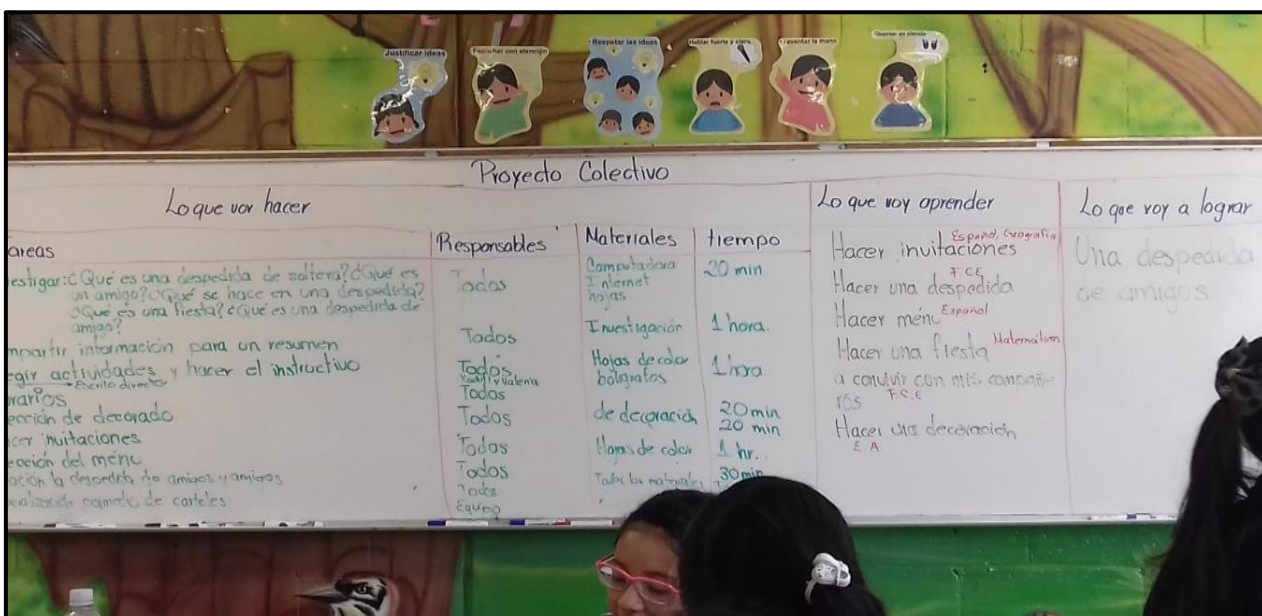 Justificar ideas
Escuchar con atención
Respetar las ideas
Hablar fuerte y claro
Levantar la mano
Proyecto Colectivo
Lo que voy hacer
Lo que voy aprender
Lo que voy a lograr
areas
Responsables
Materiales
tiempo
estigar: ¿Qué es una despedida de soltera? ¿Qué es
un amigo? ¿Qué se hace en una despedida?
¿Qué es una fiesta? ¿Qué es una despedida de
amigo?
Todos
Computadora
Internet
hojas
20 min
mpartir información para un resumen
Todos
Investigación
1 hora.
egir actividades y hacer el instructivo
Todos
Hojas de color
bolígrafos
1 hora.
Escrito director
y Valeria
rarios
Todos
ección de decorado
Todos
de decoración
20 min
20 min
cer invitaciones
Todos
Hojas de color
1 hr.
ección del menú
Todos
ación la despedida de amigos y amigos
Todos
Todos los materiales
30 min
de carteles
Equipo
Español, Geografía
Hacer invitaciones
F C E
Hacer una despedida
Hacer menú Español
Hacer una fiesta Matemáticas
a convivir con mis compañe
ros F.C.E
Hacer una decoración
E A
Una despedida
de amigos.